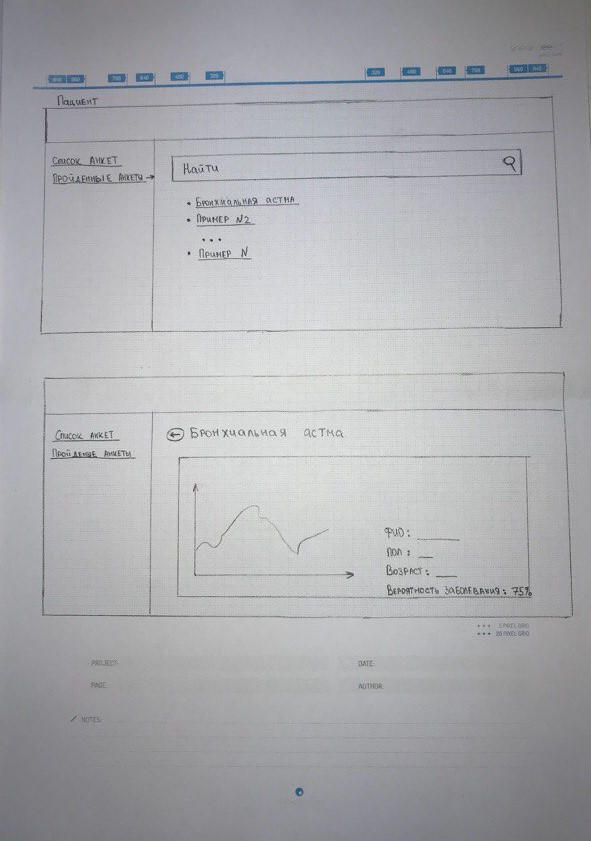 960 860
768 640
480
320
320
480
640 768
860 960
Пациент
Список анкет
Пройденные анкеты →
Найти
• Бронхиальная астма
• Пример N2
...
• Пример N
Список анкет
Пройденые анкеты
← Бронхиальная астма
ФИО: ______
Пол: __
Возраст: ___
Вероятность заболевания: 75%
5 PIXEL GRID
20 PIXEL GRID
PROJECT:
DATE:
PAGE:
AUTHOR:
NOTES: